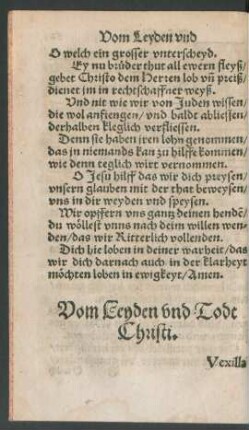 Vom Leyden vnd
O welch ein grosser vnterscheyd.
Ey nu brüder thut all ewern fleyß/
gebet Christo dem Herren lob vñ preiß/
dienet jm in rechtschaffner weyß.
Vnd nit wie wir von Juden wissen
die wol anfiengen/vnd baldt abliessen/
derhalben kleglich verfliessen.
Denn sie haben jren lohn genommen/
das jn niemands kan zu hilffe kommen/
wie denn teglich wirt vernommen.
O Jesu hilff das wir dich preysen/
vnsern glauben mit der that beweysen/
vns in dir weyden vnd speysen.
Wir opffern vns gantz deinen hendē/
du wöllest vnns nach deim willen wen-
den/das wir Ritterlich vollenden.
Dich hie loben in deiner warheit/das
wir dich darnach auch in der klarheyt
möchten loben in ewigkeyt/Amen.
Vom Leyden vnd Todt
Christi.
Vexilla